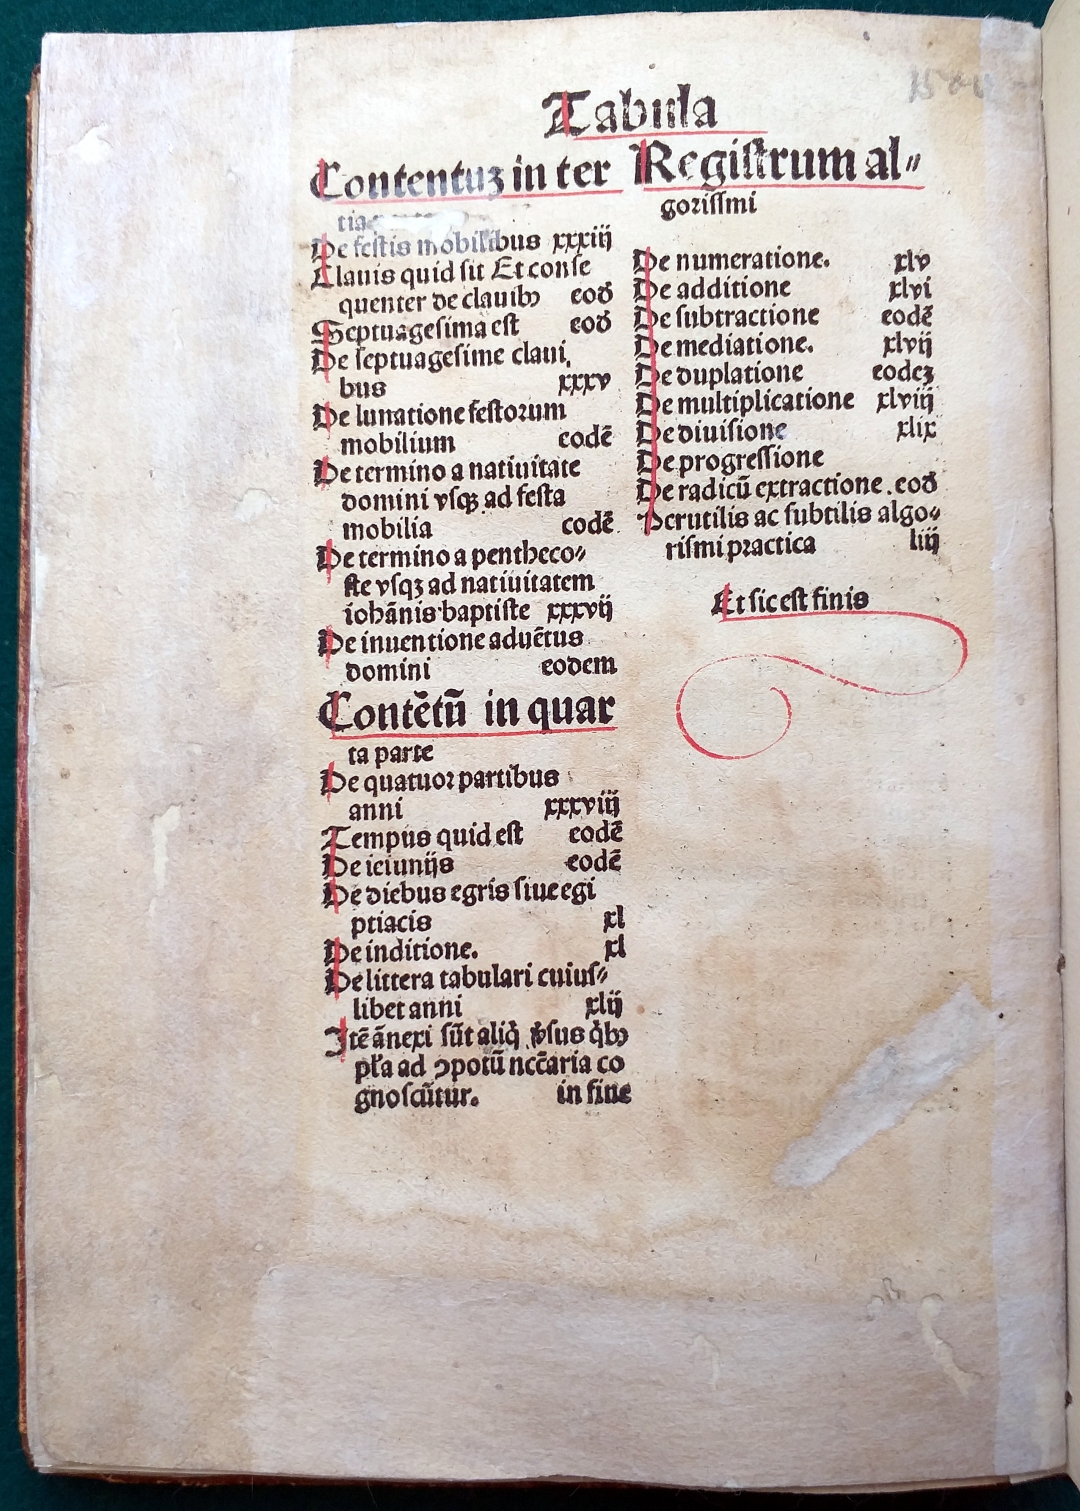 Tabula
Contentuʒ in ter
tia
De festis mobilibus xxxiij
Clauis quid sit Et conse
quenter de clauibꝰ eoð
Septuagesima est eoð
De septuagesime claui
bus xxxv
De lunatione festorum
mobilium eodē
De termino a natiuitate
domini vsqꝫ ad festa
mobilia eodē
De termino a pentheco⸗
ste vsqꝫ ad natiuitatem
iohānis baptiste xxxvij
De inuentione aduētus
domini eodem
Contētū in quar
ta parte
De quatuor partibus
anni xxxviij
Tempus quid est eodē
De ieiunijs eodē
De diebus egris siue egi
ptiacis xl
De inditione. xl
De littera tabulari cuius⸗
libet anni xlij
Itē ānexi sūt aliq̇ v̇sus q̇bꝰ
pl̄a ad ꝯpotū nccāria co
gnoscūtur. in fine
Registrum al⸗
gorissmi
De numeratione. xlv
De additione xlvi
De subtractione eodē
De mediatione. xlvij
De duplatione eodeʒ
De multiplicatione xlviij
De diuisione xlix
De progressione
De radicū extractione. eoð
Perutilis ac subtilis algo⸗
rismi practica liij
Et sic est finis